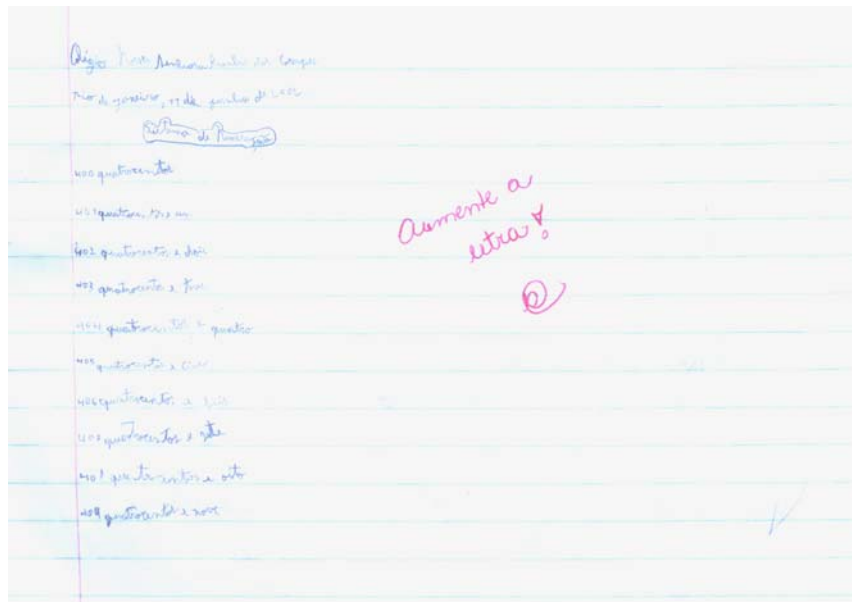 Rio de Janeiro, de junho de
Sistema de Numeração
400 quatrocentos
401 quatrocentos e um
402 quatrocentos e dois
403 quatrocentos e três
404 quatrocentos e quatro
405 quatrocentos e
406 quatrocentos e seis
407 quatrocentos e sete
408 quatrocentos e oito
409 quatrocentos e nove
Aumente a
letra!